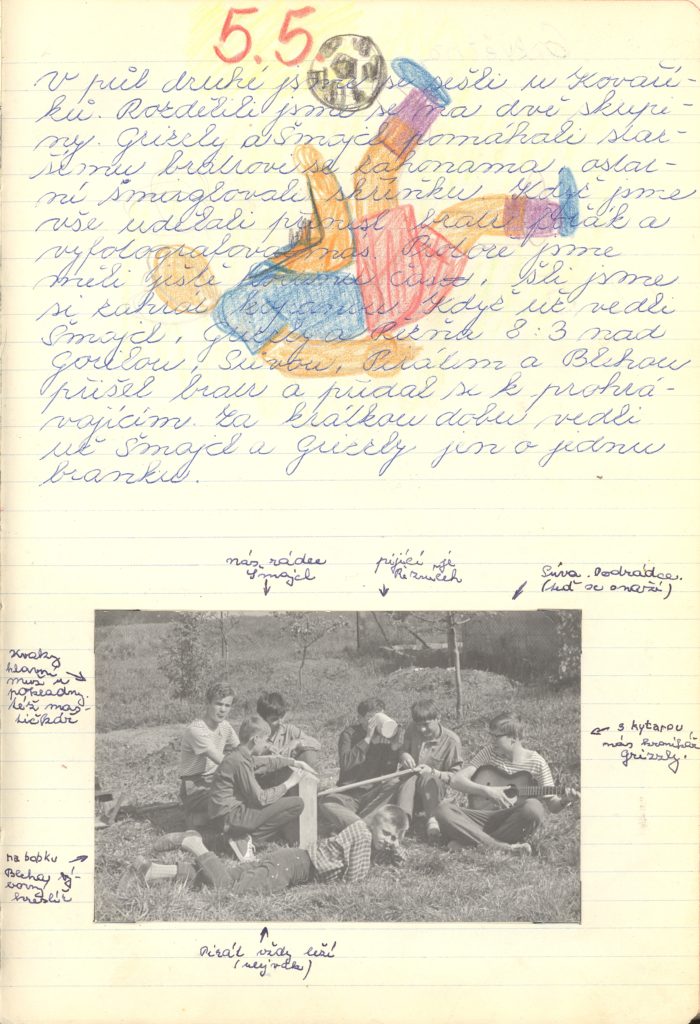 5.5.
V půl druhé jsme se sešli u Kovaří-
ků. Rozdělili jsme se na dvě skupi-
ny. Grizzly a Šmajcl pomáhali star-
šímu bratrovi se zahonama, ostat-
ní šmirglovali skříňku. Když jsme
vše udělali přišel bratr a
vyfotografoval nás. Protože jsme
měli ještě času, šli jsme
si zahrát kopanou. Když už vedli
Šmajcl, grizzly a 8:3 nad
Gorilou, Súvou, Pirátem a Blehou
přišel bratr a přidal se k prohrá-
vajícím. Za krátkou dobu vedli
už Šmajcl a Grizzly jen o jednu
branku.
náš rádce
Šmajcl
pijící je
Súva. Podrádce.
(teď se snaží)
Kvaky
hlavní
muž u
pokladny.
též mas-
tičkář
s kytarou
náš kronikář
Grizzly.
na bobku
Bleha
Pirát vždy leží